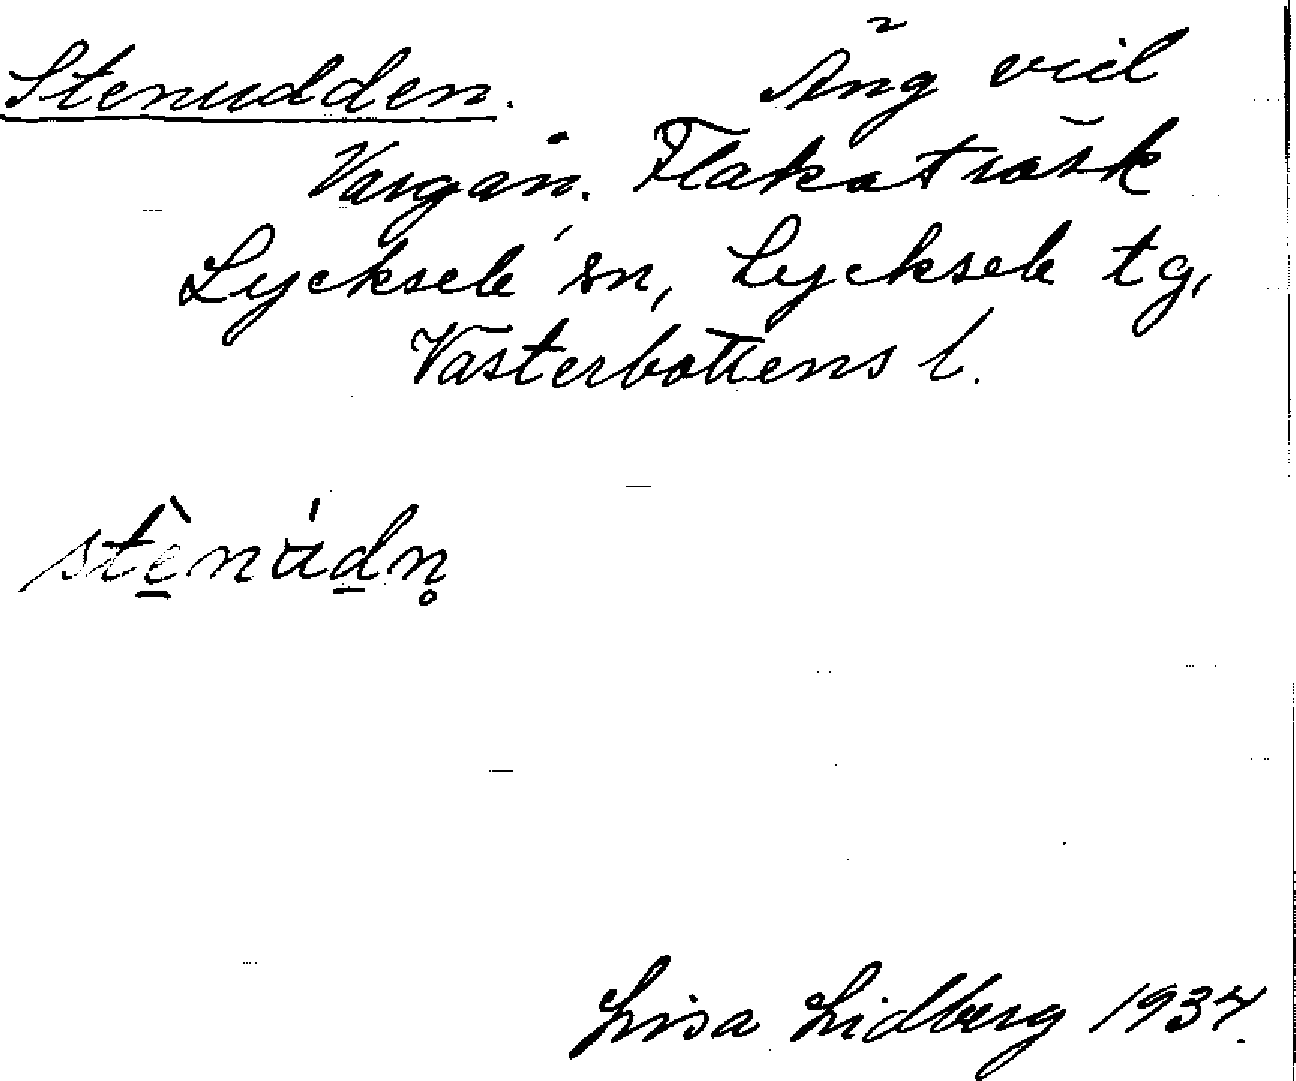 Stenudden. Äng vid
Vargån. Flakaträsk
Lycksele sn, Lycksele tg,
Västerbottens l.
stè̠nu̍d̠n̥
Lisa Lidberg 1937.